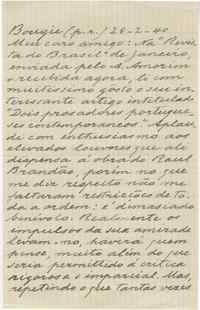 Bougie (p.r.) 28-2-40
Meu caro amigo: Na "Revis-
ta do Brasil" de Janeiro,
enviada pelo A. Amorim
e recebida agora, li com
muitissimo gosto o seu in-
teressante artigo intitulado
"Dois prosadores portugue-
ses contemporaneos". Aplau-
di com enthusiasmo aos
elevados louvores que ali
dispensa á obra de Raul
Brandão, porém no que
me diz respeito não me
faltaram restricções de to-
da a ordem: é dimasiado
benivolo. Realmente os
impulsos da sua amizade
levam-no, haverá quem
pense, muito além do que
seria permettido á critica
rigorosa e imparcial. Mas,
repetindo o que tantas vezes